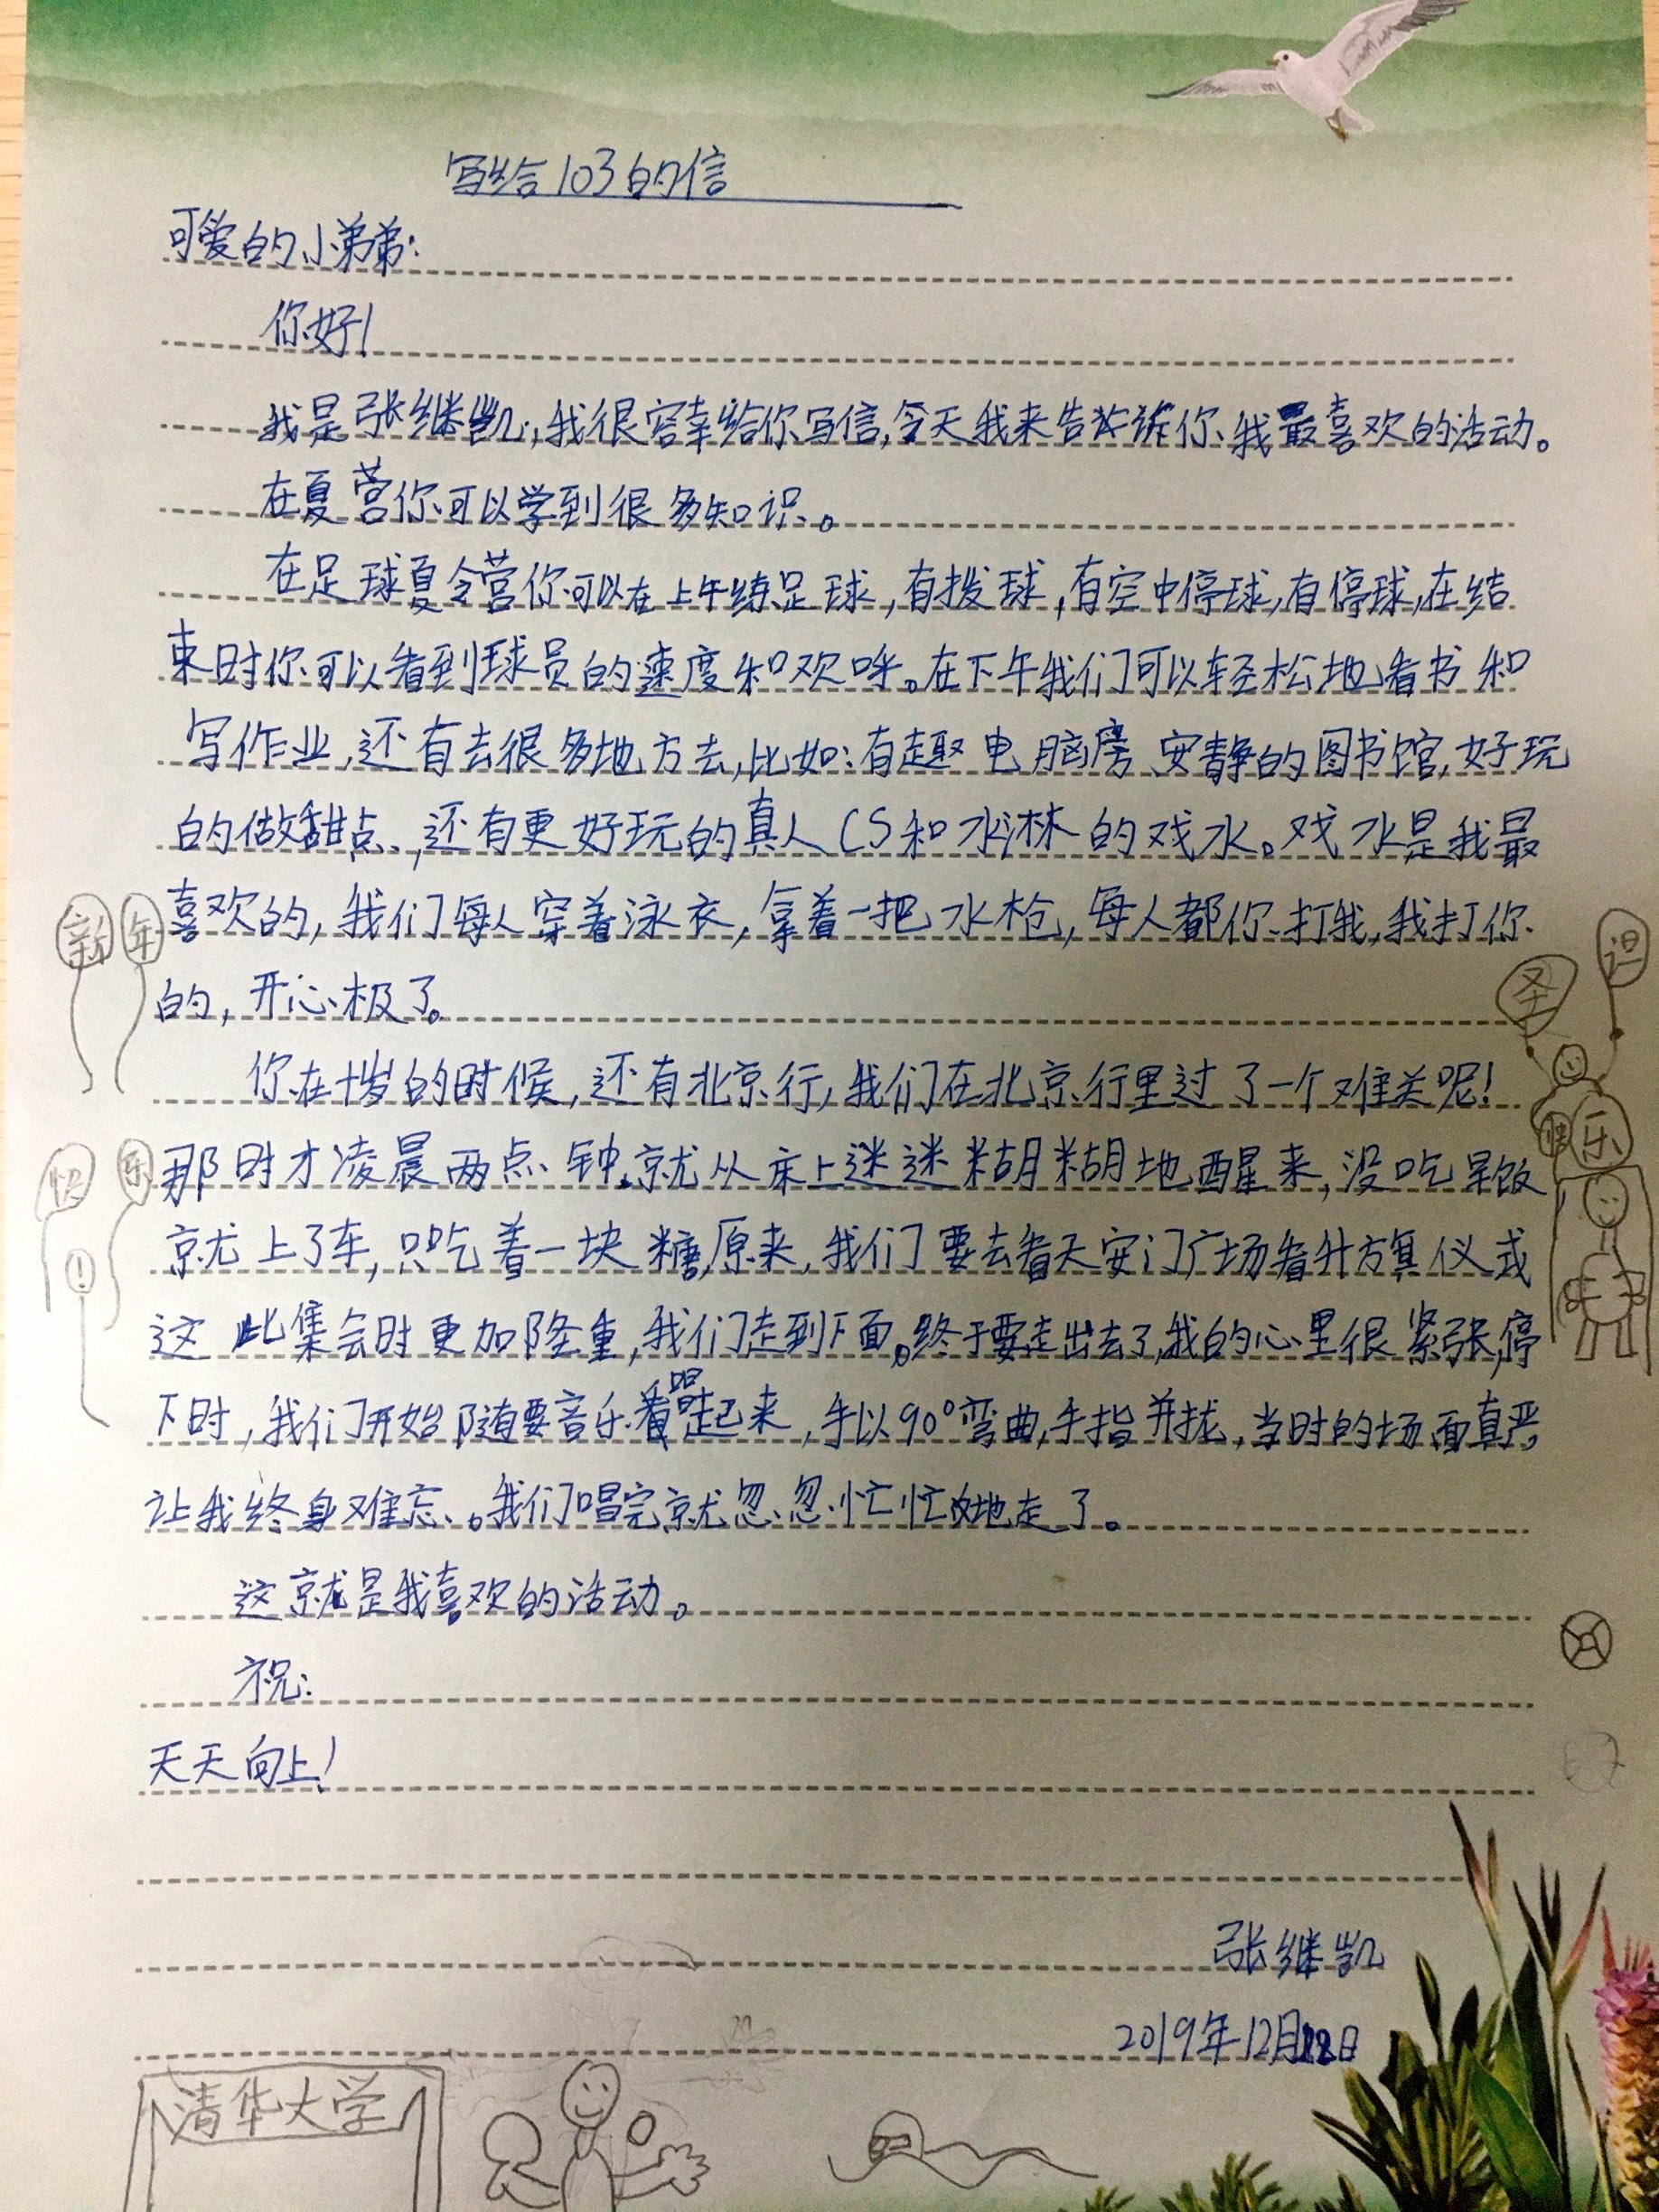 写给103的信
可爱的小弟弟:
你好!
我是张继凯,我很容幸给你写信,今天我来告诉你我最喜欢的活动。
在夏营你可以学到很多知识。
在足球夏令营你可以在上午练足球,有拨球,有空中停球,有停球,在结
束时你可以看到球员的速度和欢呼。在下午我们可以轻松地看书和
写作业,还有去很多地方去,比如:有趣电脑房 安静的图书馆,好玩
的做甜点,还有更好玩的真人CS和水淋的戏水。戏水是我最
喜欢的,我们每人穿着泳衣,拿着一把水枪,每人都你打我,我打你
的,开心极了。
你在十岁的时候,还有北京行,我们在北京行里过了一个难关呢!
那时才凌晨两点钟,就从床上迷迷糊糊地醒来,没吃早饭
就上了车,只吃着一块糖,原来,我们要去看天安门广场看升旗仪式
这此集会时更加隆重,我们走到下面。终于要走出去了,我的心里很紧张,停
下时,我们开始随要音乐着唱起来,手以90°弯曲,手指并拢,当时的场面真严,
让我终身难忘。我们唱完就忽忽忙忙地走了。
这就是我喜欢的活动。
祝:
天天向上!
张继凯
2019年12月日
新年
快乐
!
圣诞
快乐
清华大学